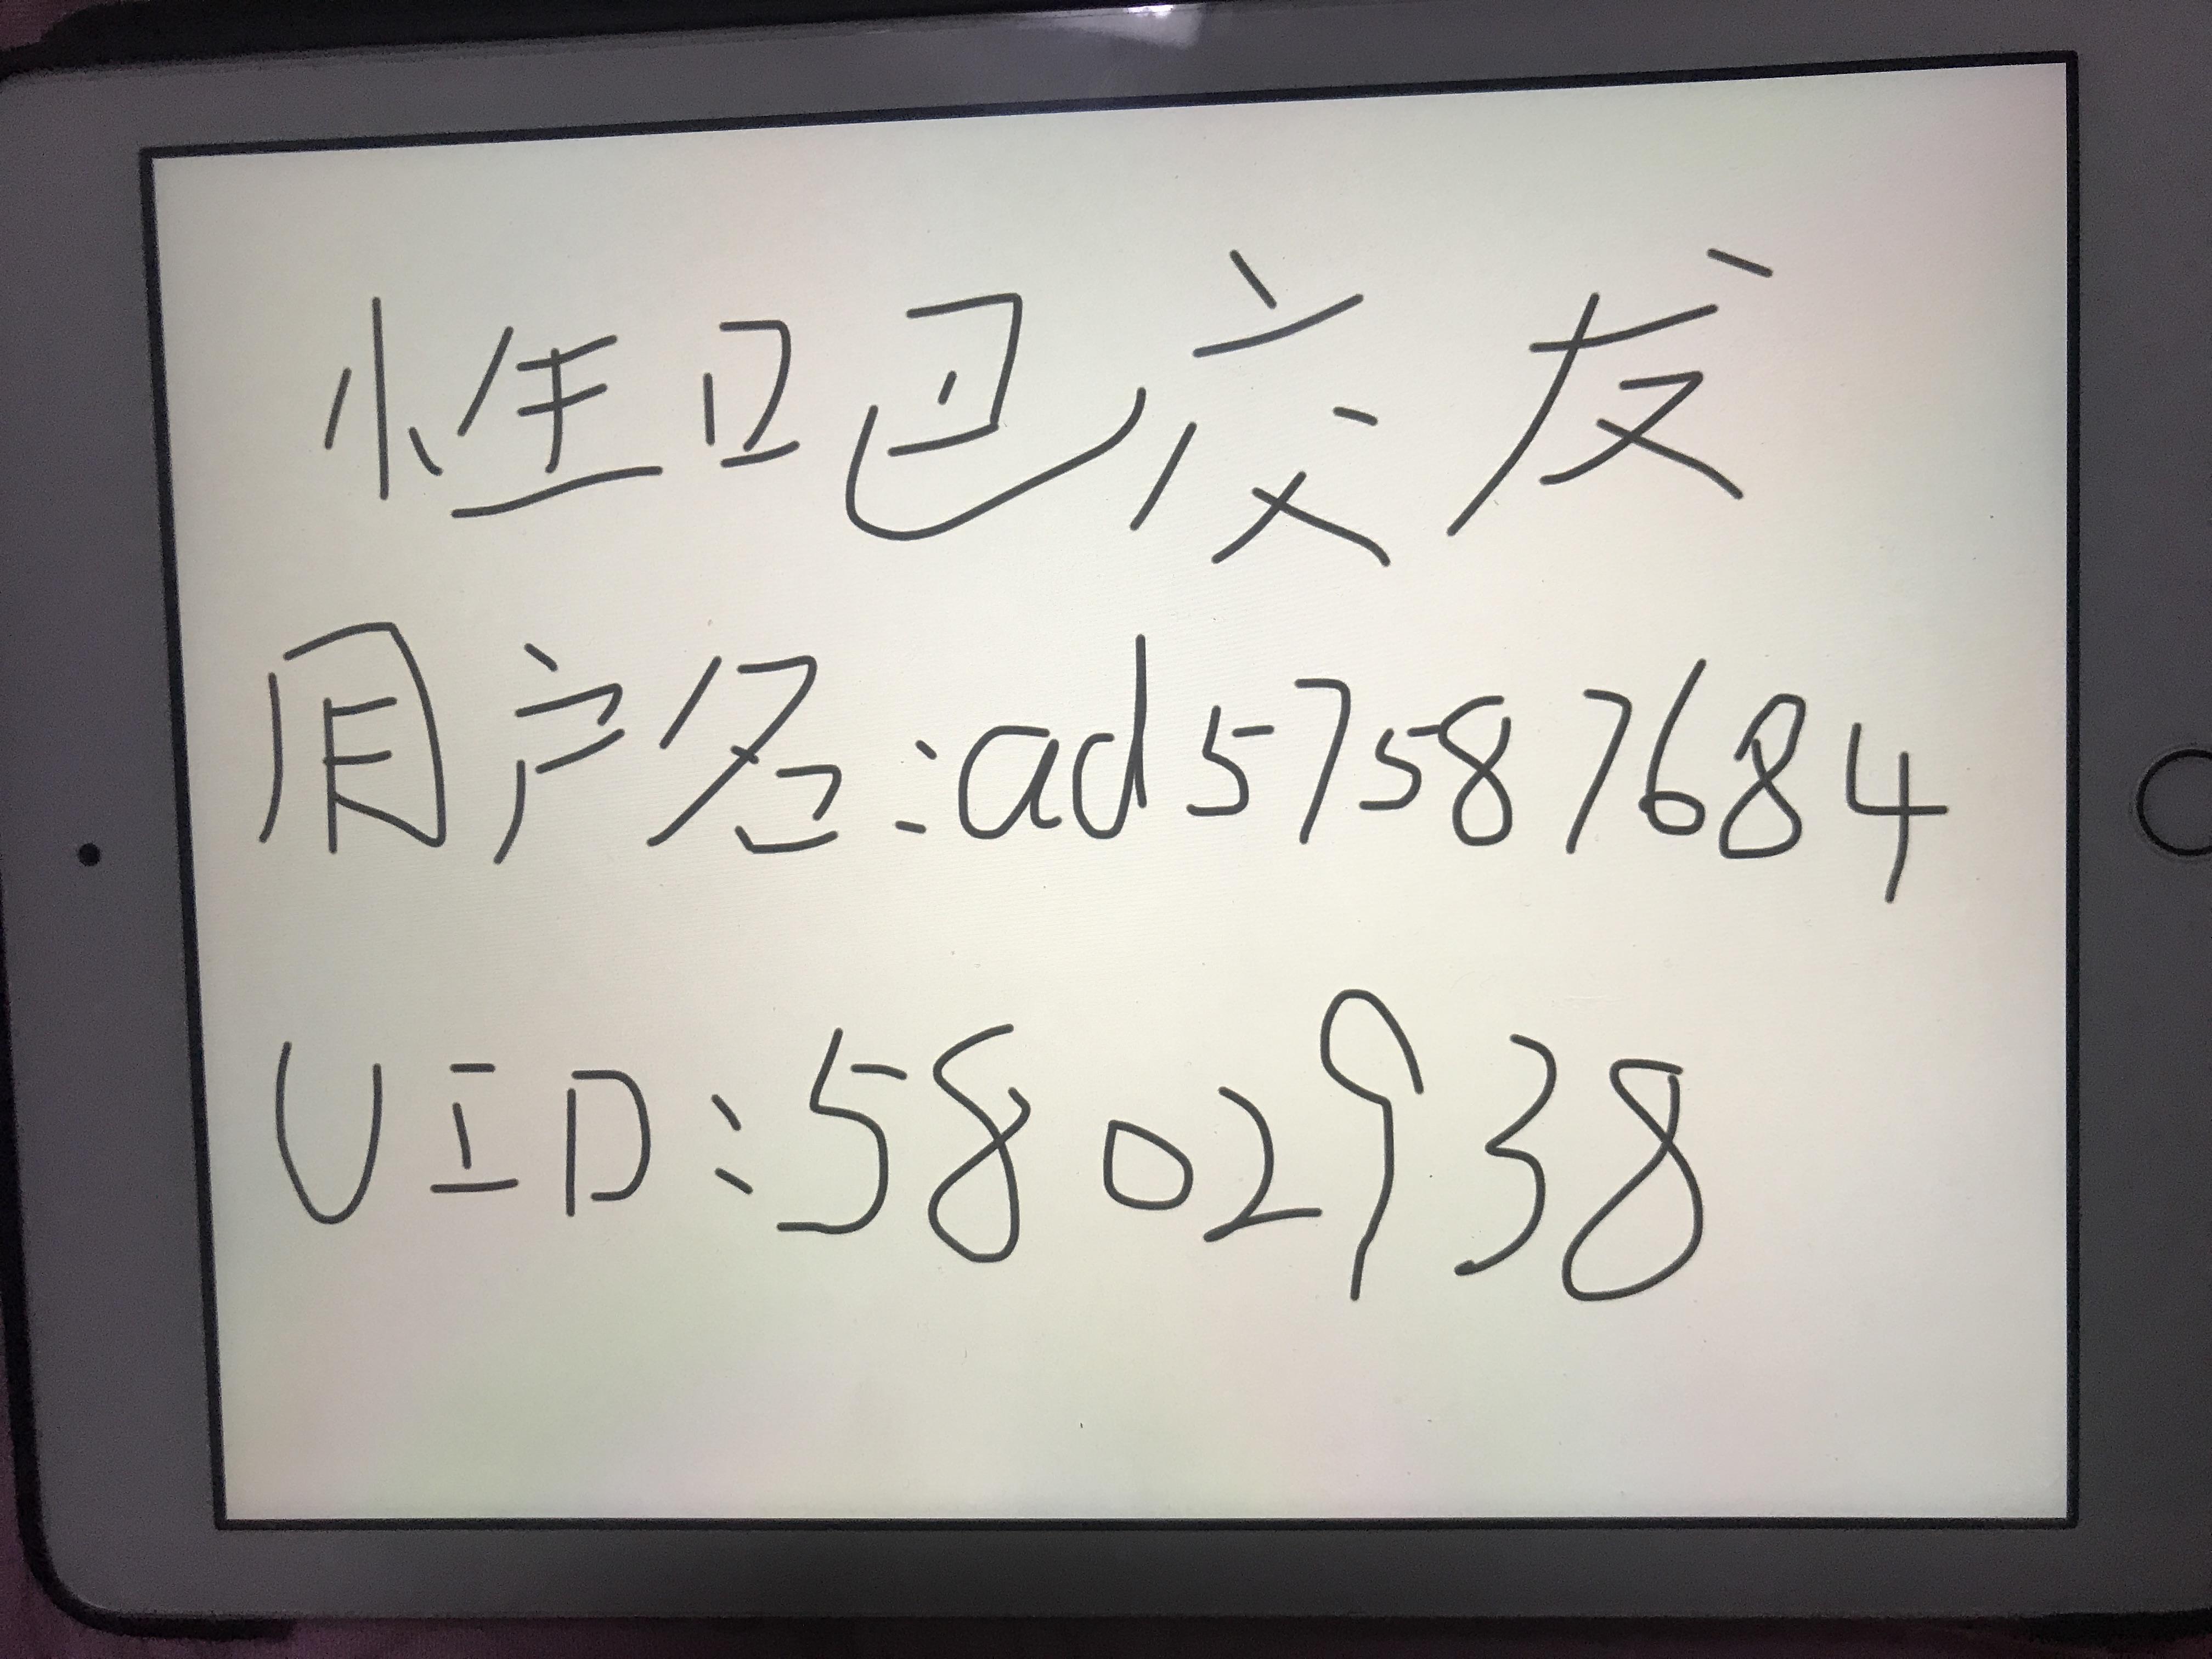 性吧交友
用户名:ad57587684
UID:5802938